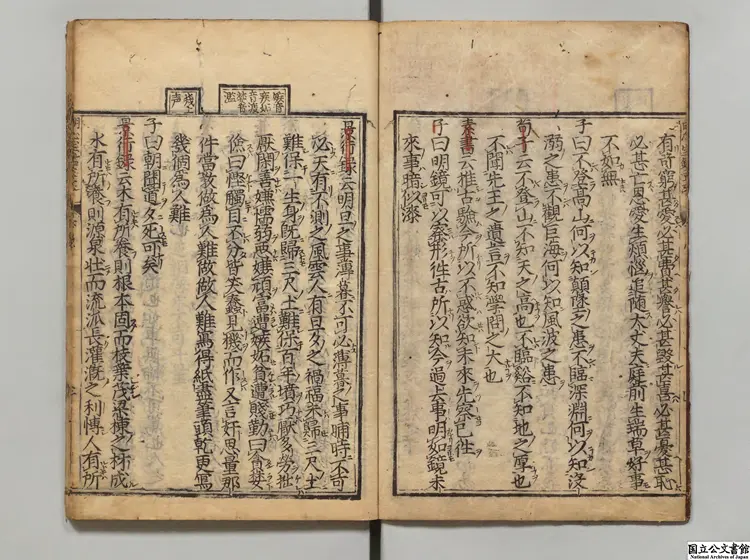 有奇窮甚愛必甚費甚譽必甚毀甚喜必甚憂甚恥
必甚亡恩愛生煩惱追隨大丈夫庭前生瑞草好事
不如無
子曰不登高山何以知顛墜之患不臨深淵何以知沒
溺之患不觀巨海何以知風波之患
荀子云不登山不知天之高也不臨谿不知地之厚也
不聞先王之遺言不知學問之大也
素書云推古驗今所以不惑欲知未來先察已往
子曰明鏡可以察形往古所以知今過去事明如鏡未
來事暗似漆
景行錄云明旦之事薄暮不可必薄暮之事晡時不可
必天有不測之風雲人有旦夕之禍福未歸三尺土
難保一生身既歸三尺土難保百年墳巧厭多勞拙
厭閑善嫌懦弱惡嫌頑富遭嫉妬貧遭賤勤曰貪婪
儉曰慳觸目不分皆笑蠢見機而作又言奸思量那
件當教做為人難做做人難寫得紙盡筆頭乾更寫
幾個為人難
子曰朝聞道夕死可矣
景行錄云木有所養則根本固而枝葉茂梁棟之材成
水有所養則源泉壯而流派長灌溉之利愽人有所
国立公文書館
National Archives of Japan